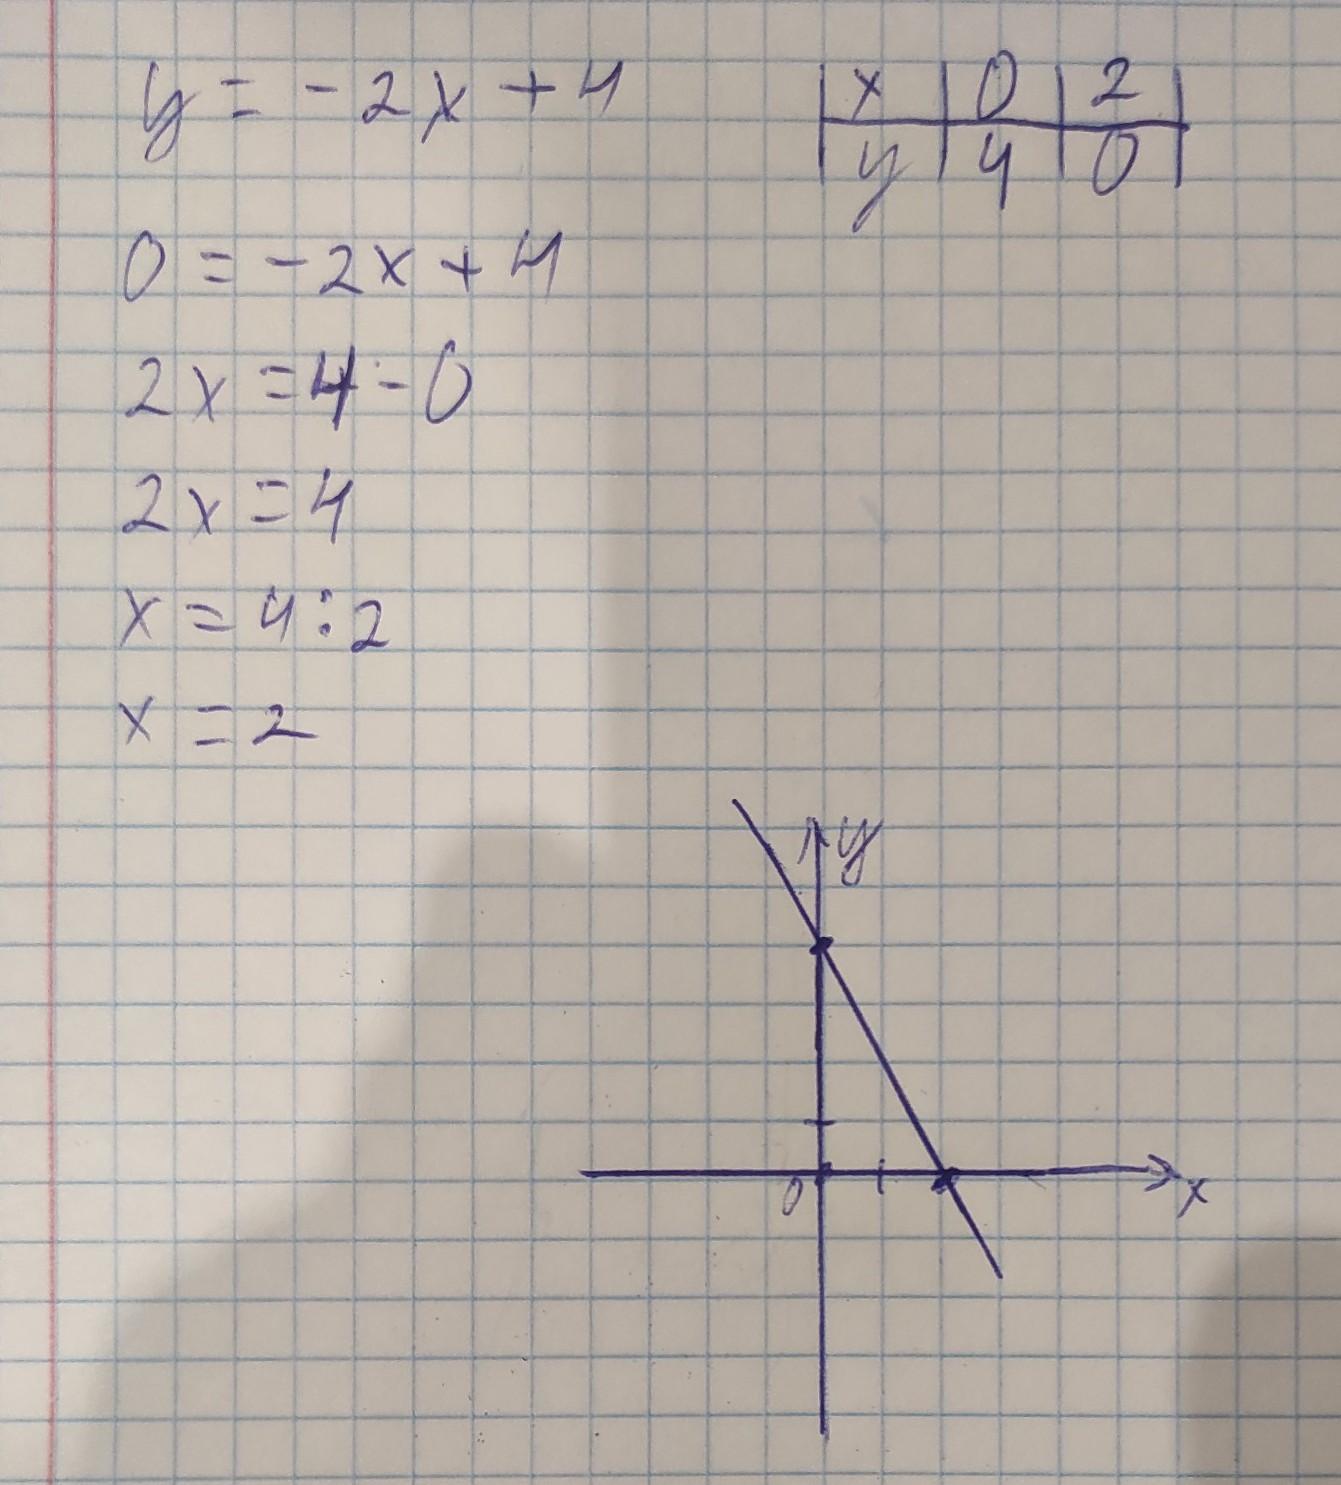 y = -2x + 4
x 0 2
y 4 0
0 = -2x + 4
2x = 4 - 0
2x = 4
x = 4 : 2
x = 2
y
0 x